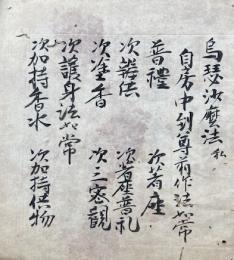 烏瑟沙麼法 私
自房中到尊前作法如常
普禮 次著座
次器供 次著座普礼
次塗香 次三密観
次護身法如常
次加持香水 次加持供物